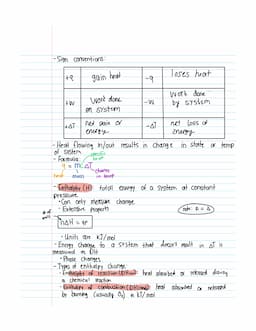 - Sign conventions:
+q gain heat -q loses heat
+W Work done on system -W Work done by system
+ΔT net gain of energy -ΔT net loss of energy
- Heat flowing in/out results in change in state or temp of system
- Formula:
q = mcΔT
heat mass change in temp
- Enthalpy (H) total energy of a system at constant pressure
- Can only measure change
- Extensive property
# of
nΔH = q
- Units are kJ/mol
- Energy change to a system that doesn't result in ΔT is measured in ΔH
- Phase changes
- Types of enthalpy change
- Enthalpy of reaction heat absorbed or released during a chemical reaction
- Enthalpy of combustion heat absorbed or released by burning (usually O₂) in kJ/mol